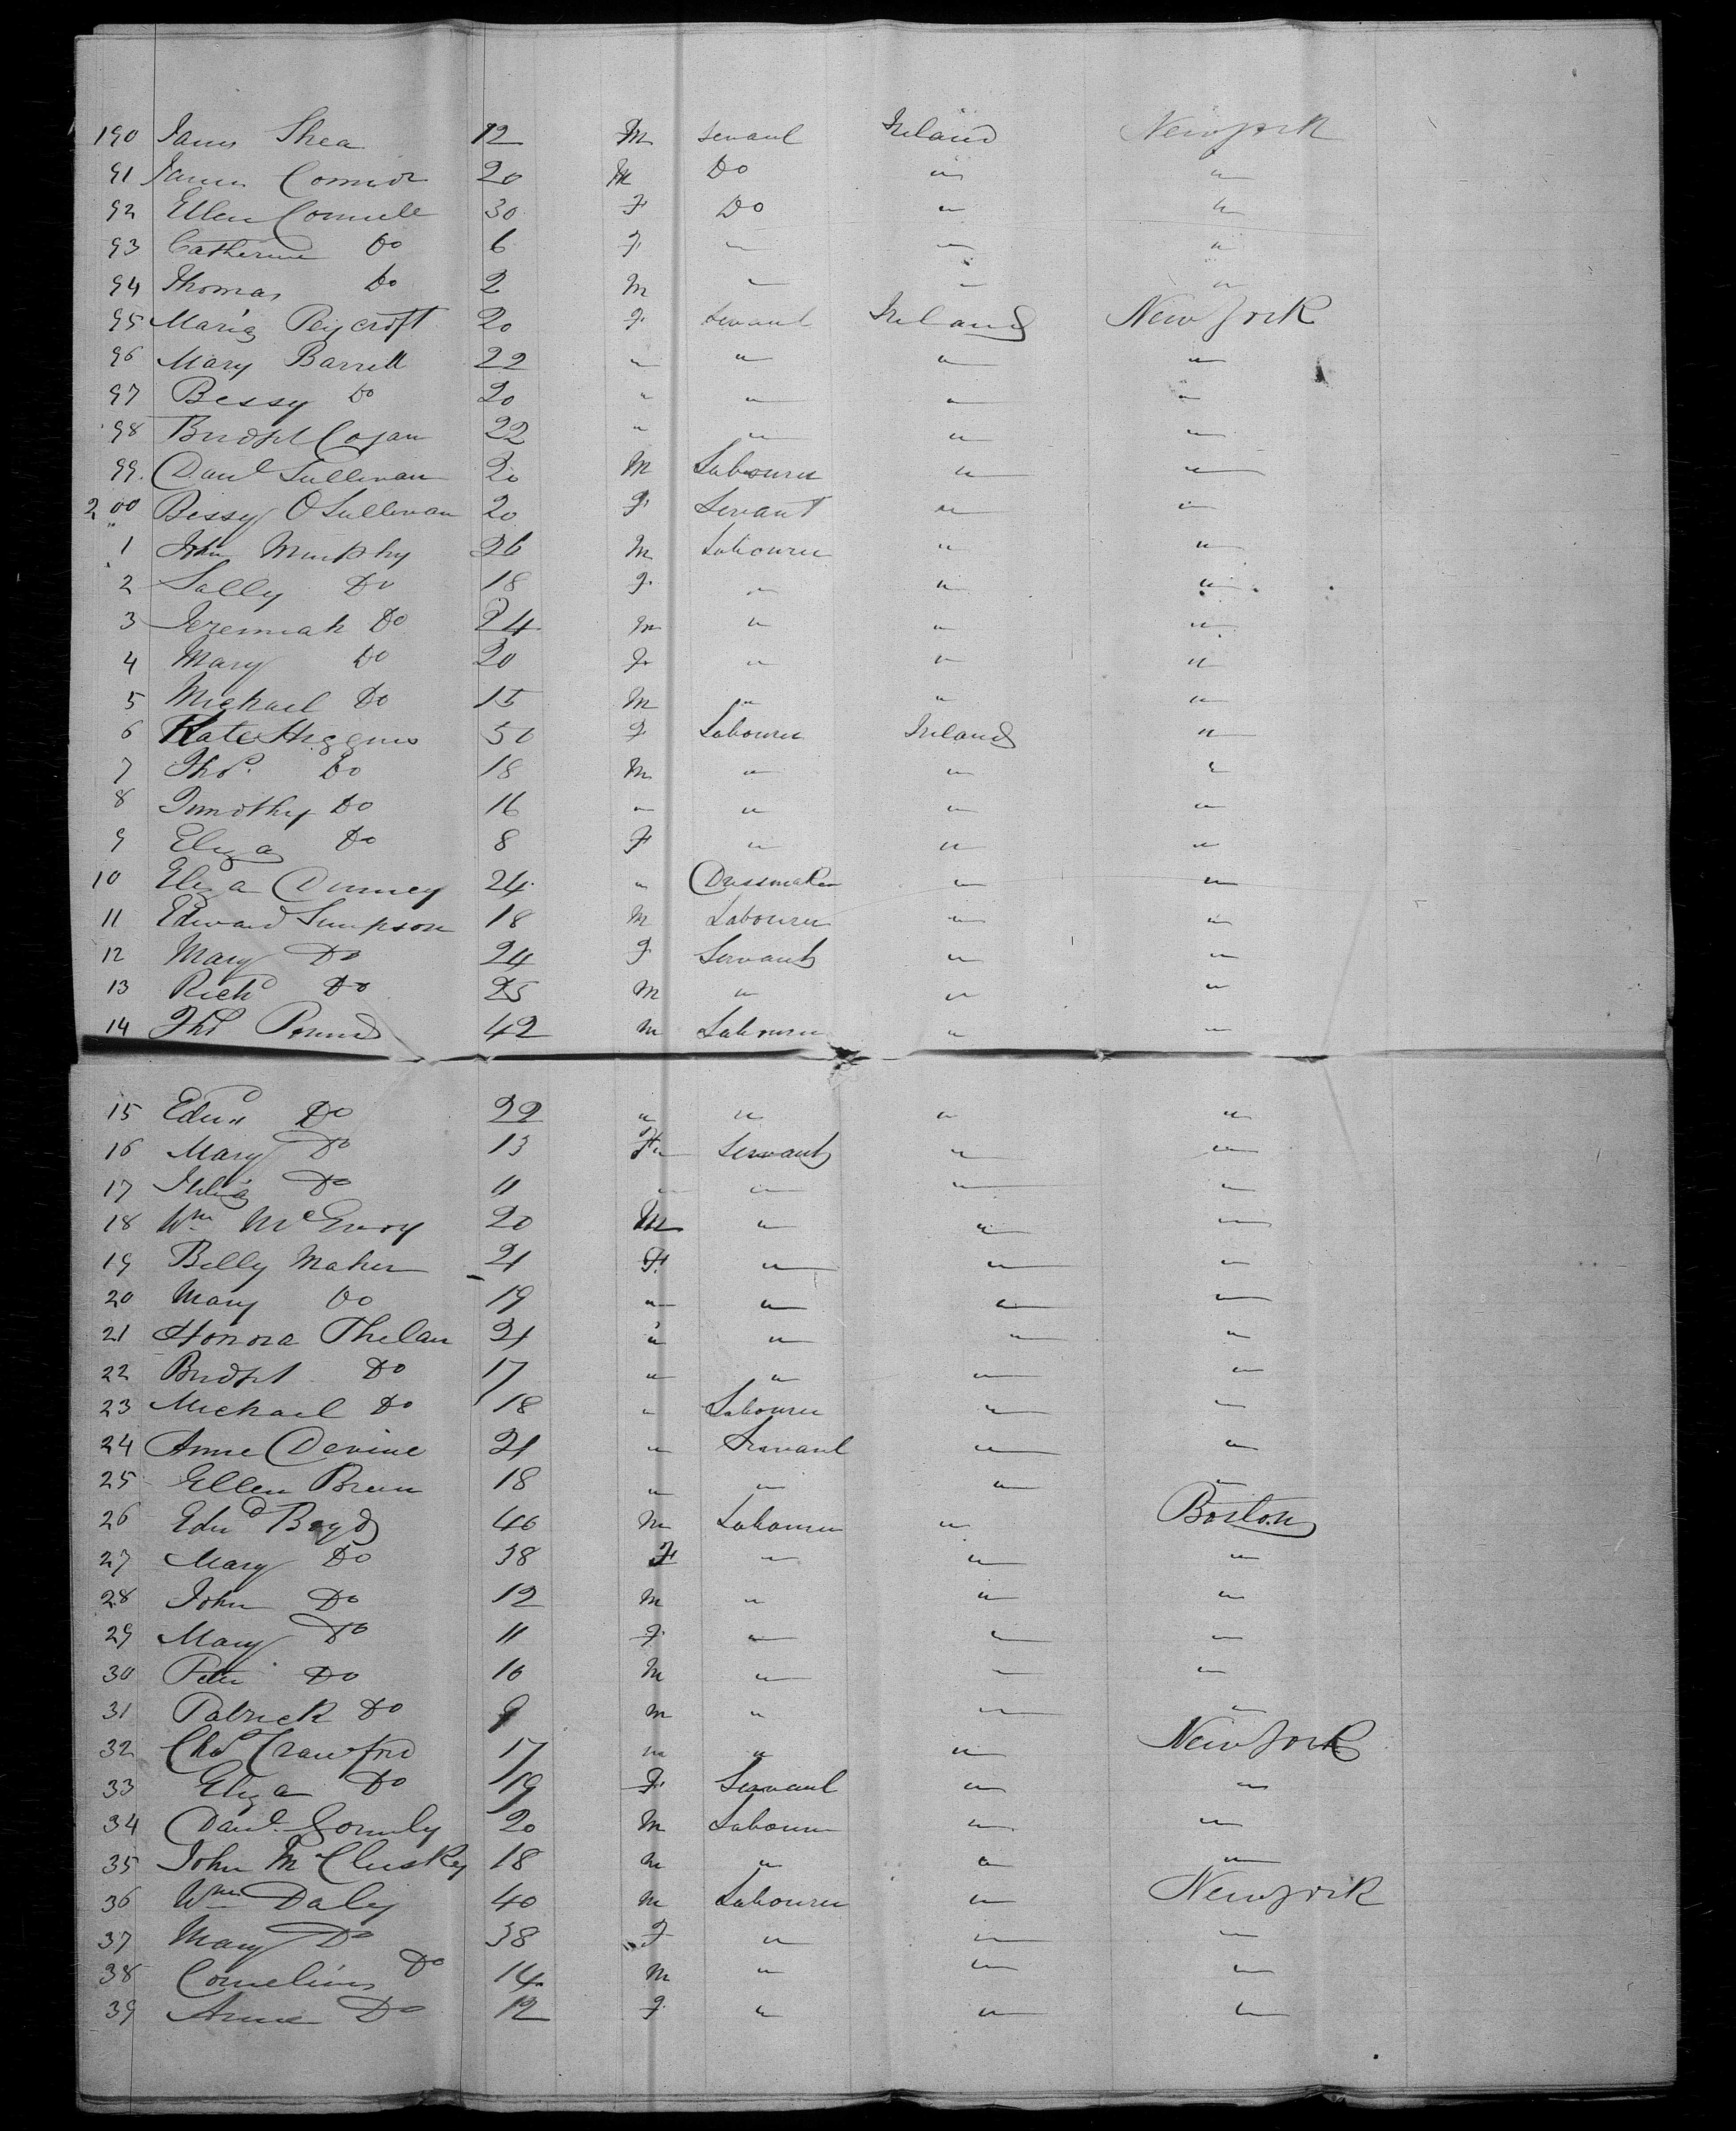 190 James Shea 12 M Servant Ireland New York
91 James Connor 20 M Do " "
92 Ellen Connell 30 F Do " "
93 Catherine Do 6 F " " "
94 Thomas Do 2 M " " "
95 Maria Peycroft 20 F Servant Ireland New York
96 Mary Barrett 22 " " " "
97 Bessy Do 20 " " " "
98 Bridget Cogan 22 " " " "
99 Danl Sullivan 20 M Labourer " "
200 Bessy O Sullivan 20 F Servant " "
1 John Murphy 26 M Labourer " "
2 Sally Do 18 F " " "
3 Jeremiah Do 24 M " " "
4 Mary Do 20 F " " "
5 Michael Do 15 M " " "
6 Kate Higgins 50 F Labourer Ireland "
7 Thos Do 18 M " " "
8 Timothy Do 16 " " " "
9 Eliza Do 8 F " " "
10 Eliza 24 " Dressmaker " "
11 Edward Simpson 18 M Labourer " "
12 Mary Do 24 F Servant " "
13 Richd Do 25 M " " "
14 Thos 42 M Labourer " "
15 Edwd Do 22 " " " "
16 Mary Do 13 F " Servant " "
17 Julia Do 11 " " " "
18 Wm McEvoy 20 M " " "
19 Belly Maher 21 F " " "
20 Mary Do 19 " " " "
21 Honora Phelan 21 " " " "
22 Bridget Do 17 " " " "
23 Michael Do 18 " Labourer " "
24 Anne Devine 21 " Servant " "
25 Ellen Breen 18 " " " "
26 Edwd Boyd 40 M Labourer " Boston
27 Mary Do 38 F " " "
28 John Do 12 M " " "
29 Mary Do 11 F " " "
30 Peter Do 10 M " " "
31 Patrick Do 9 M " " "
32 Chas Crawford 17 M " " New York
33 Eliza Do 19 F Servant " "
34 Danl Gormly 20 M Labourer " "
35 John McCluskey 18 M " " "
36 Wm Daly 40 M Labourer " New York
37 Mary Do 38 F " " "
38 Cornelius Do 14 M " " "
39 Anne Do 12 F " " "